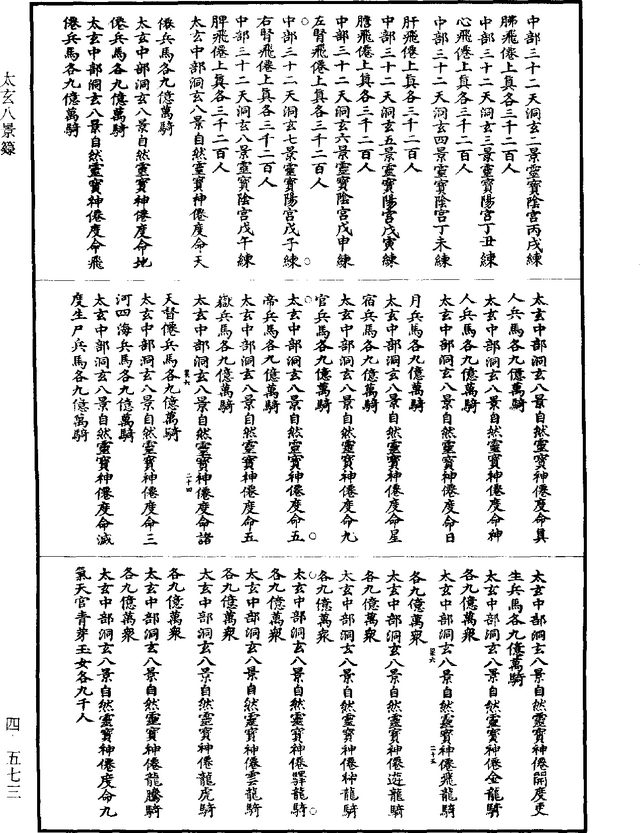 中部三十二天洞玄二景靈寶陰宮丙戌練
肺飛僊上真各三千二百人
中部三十二天洞玄三景靈寶陽宮丁丑練
心飛僊上真各三千二百人
中部三十二天洞玄四景靈寶陰宮丁未練
肝飛僊上真各三千二百人
中部三十二天洞玄五景靈寶陽宮戊寅練
膽飛僊上真各三千二百人
中部三十二天洞玄六景靈寶陰宮戊申練
左腎飛僊上真各三千二百人
中部三十二天洞玄七景靈寶陽宮戊子練
右腎飛僊上真各三千二百人
中部三十二天洞玄八景靈寶陰宮戊午練
脾飛僊上真各三千二百人
太玄中部洞玄八景自然靈寶神僊度命天
僊兵馬各九億萬騎
太玄中部洞玄八景自然靈寶神僊度命地
僊兵馬各九億萬騎
太玄中部洞玄八景自然靈寶神僊度命飛
僊兵馬各九億萬騎
太玄八景籙
太玄中部洞玄八景自然靈寶神僊度命真
人兵馬各九億萬騎
太玄中部洞玄八景自然靈寶神僊度命神
人兵馬各九億萬騎
太玄中部洞玄八景自然靈寶神僊度命日
月兵馬各九億萬騎
太玄中部洞玄八景自然靈寶神僊度命星
宿兵馬各九億萬騎
太玄中部洞玄八景自然靈寶神僊度命九
官兵馬各九億萬騎
太玄中部洞玄八景自然靈寶神僊度命五
帝兵馬各九億萬騎
太玄中部洞玄八景自然靈寶神僊度命五
嶽兵馬各九億萬騎
太玄中部洞玄八景自然靈寶神僊度命諸
二十四
天督僊兵馬各九億萬騎
太玄中部洞玄八景自然靈寶神僊度命三
河四海兵馬各九億萬騎
太玄中部洞玄八景自然靈寶神僊度命滅
度生尸兵馬各九億萬騎
太玄中部洞玄八景自然靈寶神僊開度更
生兵馬各九億萬騎
太玄中部洞玄八景自然靈寶神僊金龍騎
各九億萬眾
太玄中部洞玄八景自然靈寶神僊飛龍騎
二十五
各九億萬眾
太玄中部洞玄八景自然靈寶神僊遊龍騎
各九億萬眾
太玄中部洞玄八景自然靈寶神僊神龍騎
各九億萬眾
太玄中部洞玄八景自然靈寶神僊驛龍騎
各九億萬眾
太玄中部洞玄八景自然靈寶神僊雲龍騎
各九億萬眾
太玄中部洞玄八景自然靈寶神僊龍虎騎
各九億萬眾
太玄中部洞玄八景自然靈寶神僊龍騰騎
各九億萬眾
太玄中部洞玄八景自然靈寶神僊度命九
氣天官青芽玉女各九千人
四·五七三